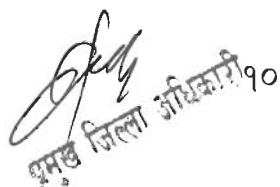 प्रमुख जिल्ला अधिकारी
१०